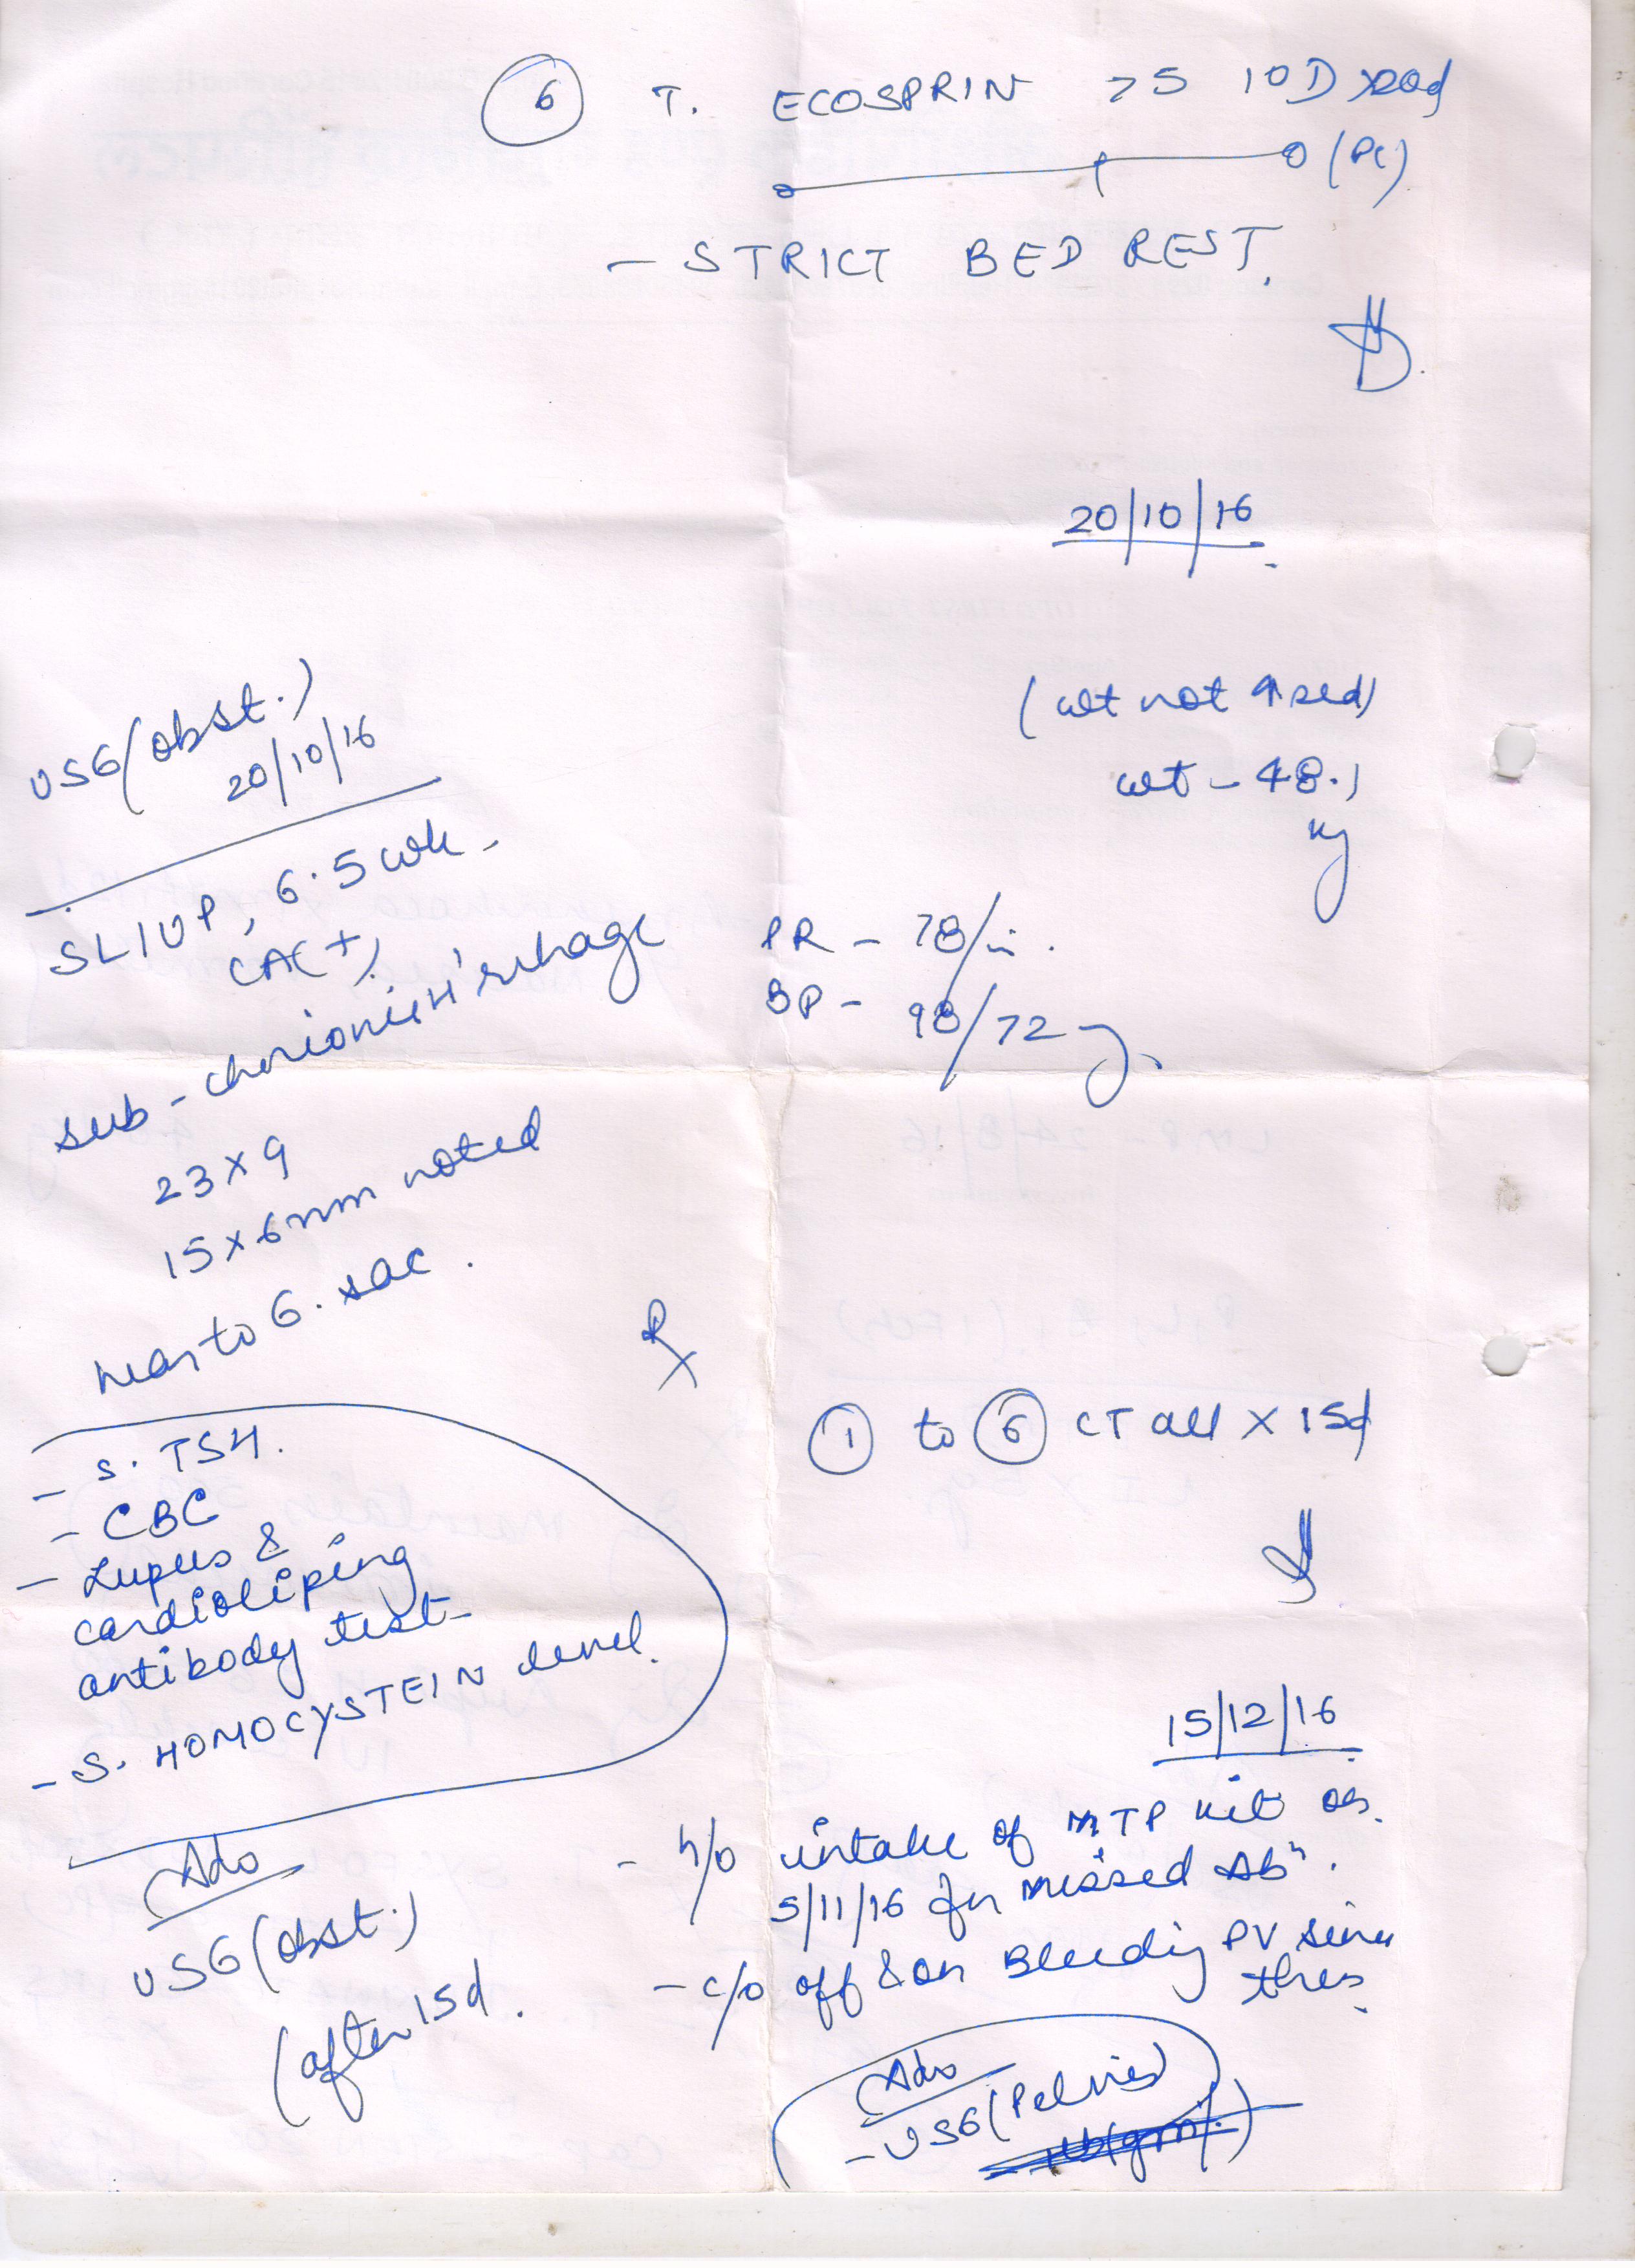 6 T. ECOSPRIN 75 10D x20d
0 — 1 — 0 (PC)
- STRICT BED REST.
20/10/16
(wt not ↑sed)
wt - 48.1
kg
USG (obst.)
20/10/16
SLIUP, 6.5 wk.
CA(+)
sub-chorionic H'rrhage
23 x 9
15 x 6 mm noted
near to G. sac.
PR - 78/m.
BP - 98/72
Rx
1 to 6 CT all X 15d
- S. TSH.
- CBC
- Lupus &
cardioliping
antibody test
- S. HOMOCYSTEIN level.
Adv
USG (obst.)
(after 15d.
15/12/16
- h/o intake of MTP kit on
5/11/16 for missed Abn.
- c/o off & on Bleeding PV since
then.
Adv
- USG (Pelvis)